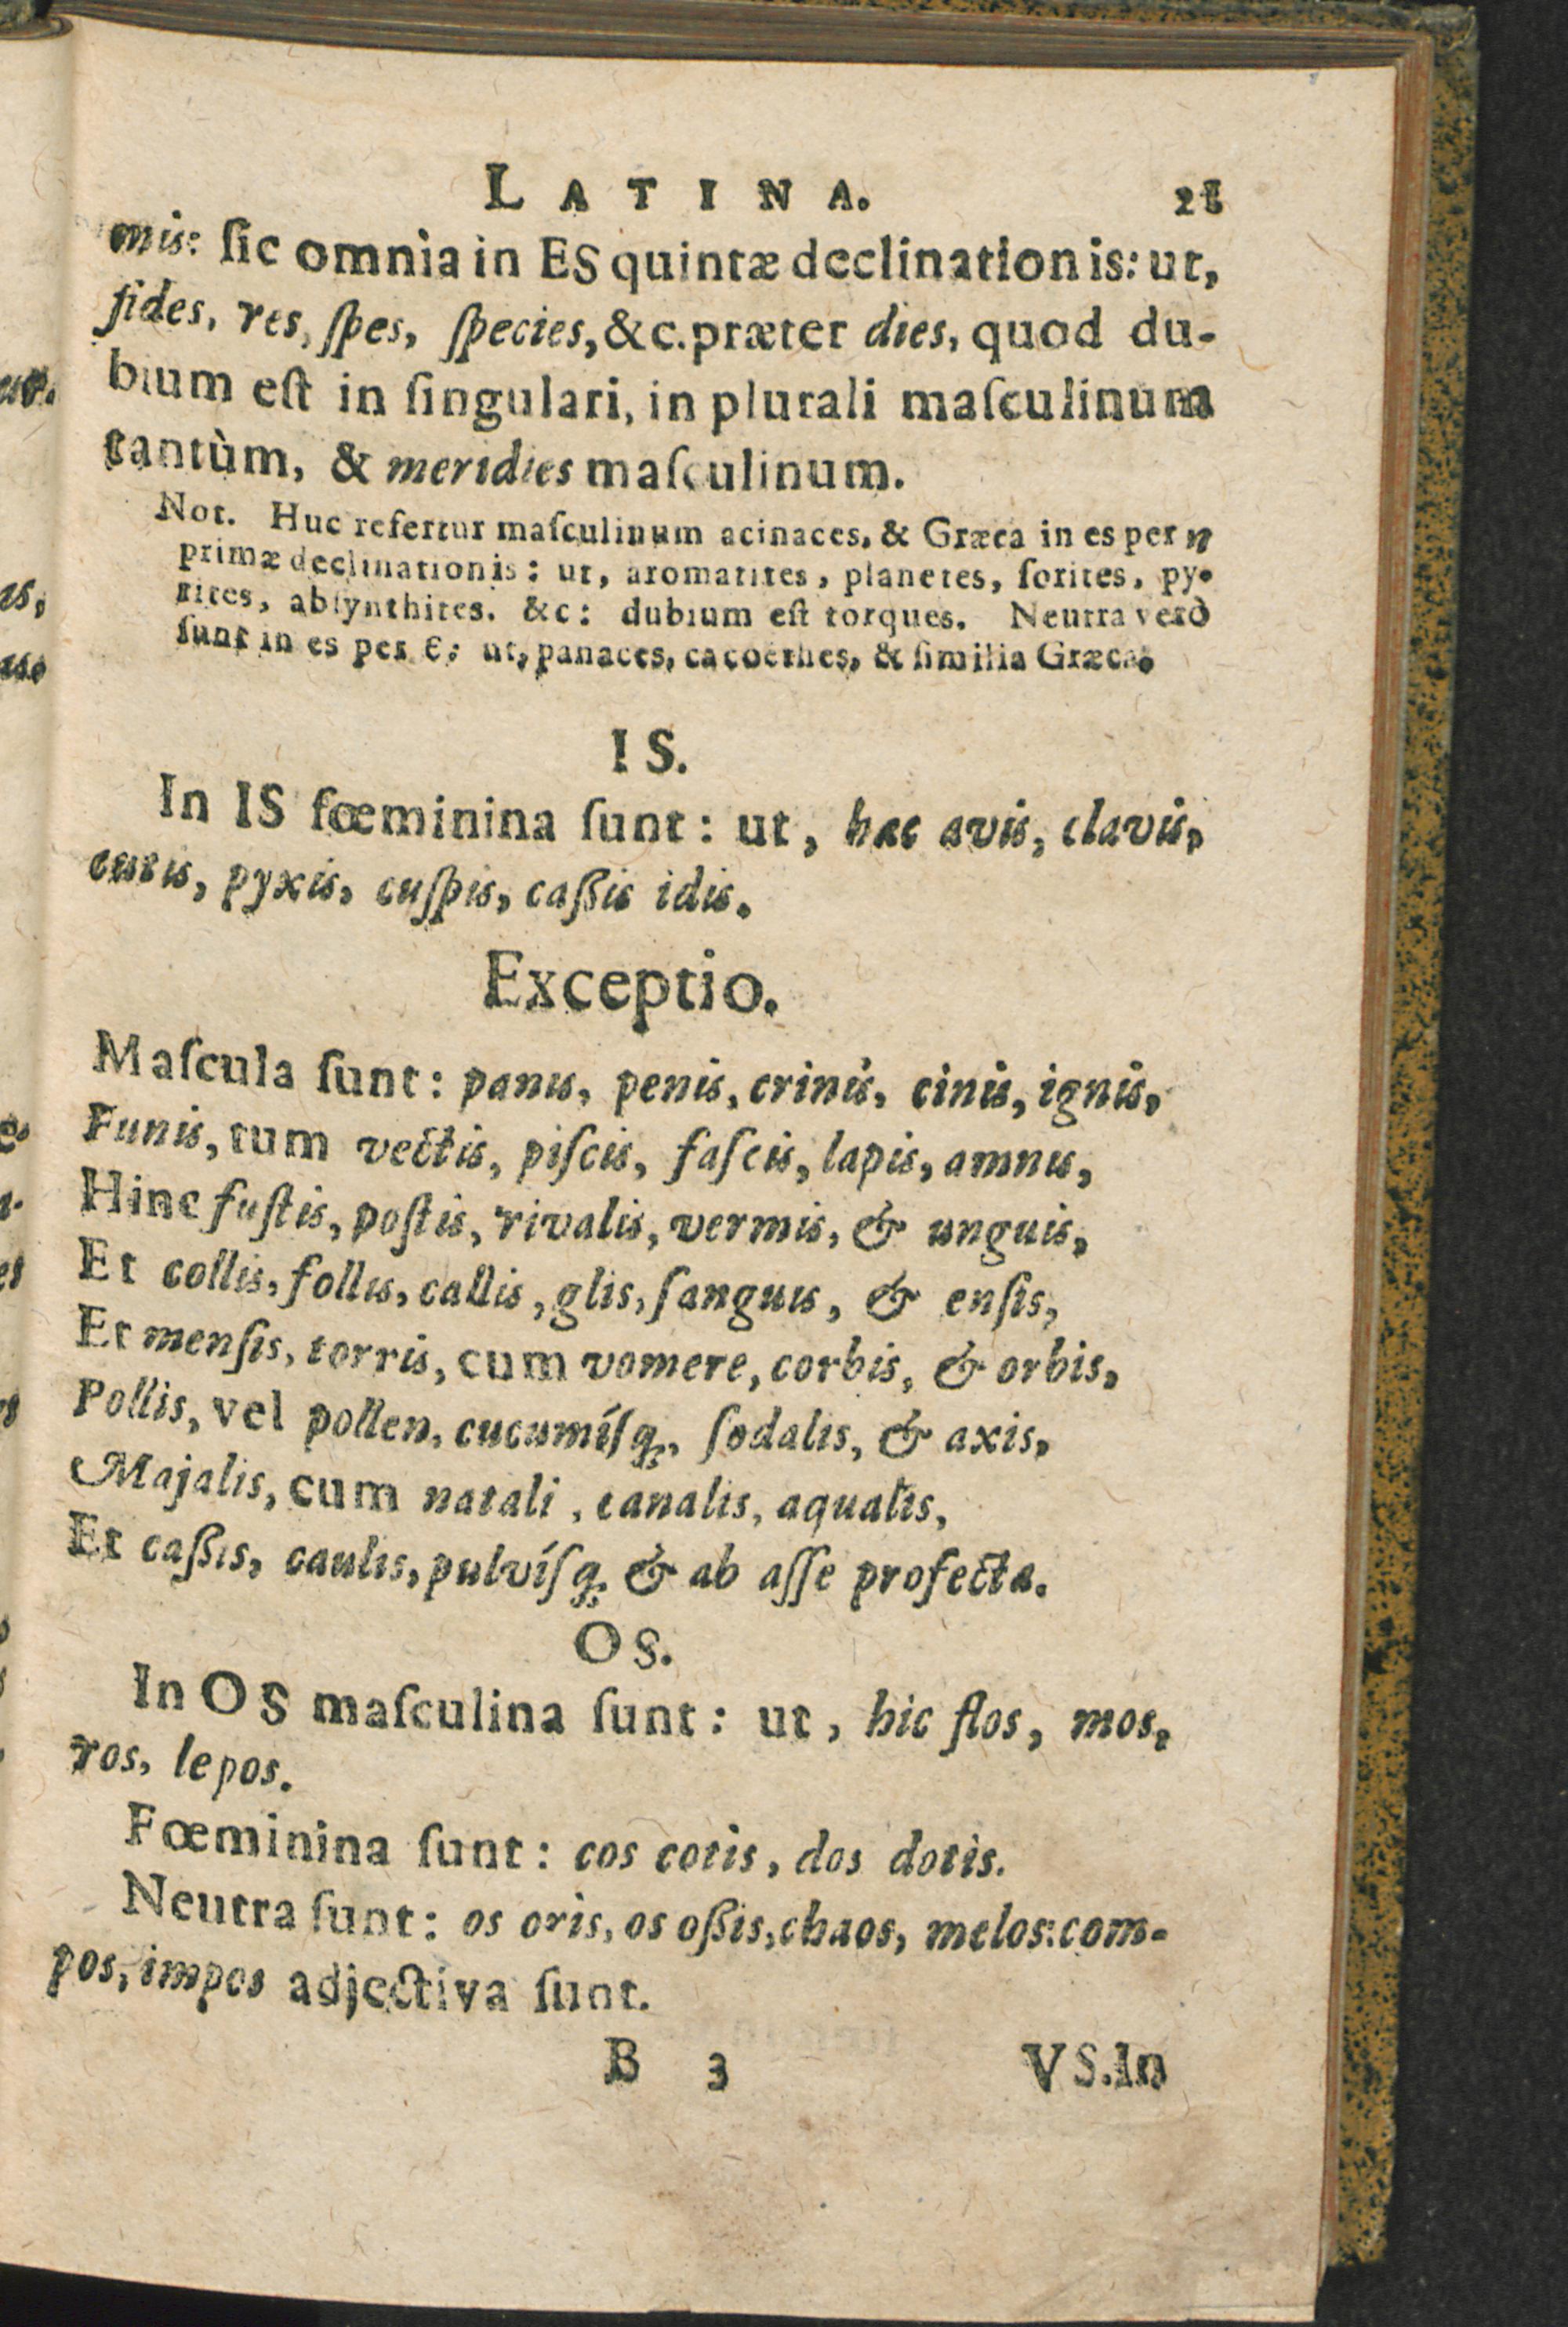 LATINA. 21
mis: ſic omnia in ES quintæ declinationis: ut,
fides, res, ſpes, ſpecies, &c. præter dies, quod du-
bium eſt in ſingulari, in plurali maſculinum
tantùm, & meridies maſculinum.
Not. Huc refertur maſculinum acinaces, & Græca in es per η
primæ declinationis: ut, aromatites, planetes, ſorites, py-
rites, abſynthites. &c: dubium eſt torques. Neutra verò
ſunt in es per ε: ut, panaces, cacoethes, & ſimilia Græca.
IS.
In IS fœminina ſunt: ut, hac avis, clavis,
cutis, pyxis, cuſpis, caßis idis.
Exceptio.
Maſcula ſunt: panis, penis, crinis, cinis, ignis,
Funis, tum vectis, piſcis, faſcis, lapis, amnis,
Hinc fuſtis, poſtis, rivalis, vermis, & unguis,
Et collis, follis, callis, glis, ſanguis, & enſis,
Et menſis, torris, cum vomere, corbis, & orbis,
Pollis, vel pollen, cucumíſq;, ſodalis, & axis,
Majalis, cum natali, canalis, aqualis,
Et caßis, caulis, pulvíſq; & ab aſſe profecta.
OS.
In OS maſculina ſunt: ut, hic flos, mos,
ros, lepos.
Fœminina ſunt: cos cotis, dos dotis.
Neutra ſunt: os oris, os oßis, chaos, melos: com-
pos, impos adjectiva ſunt.
B 3 VS. In